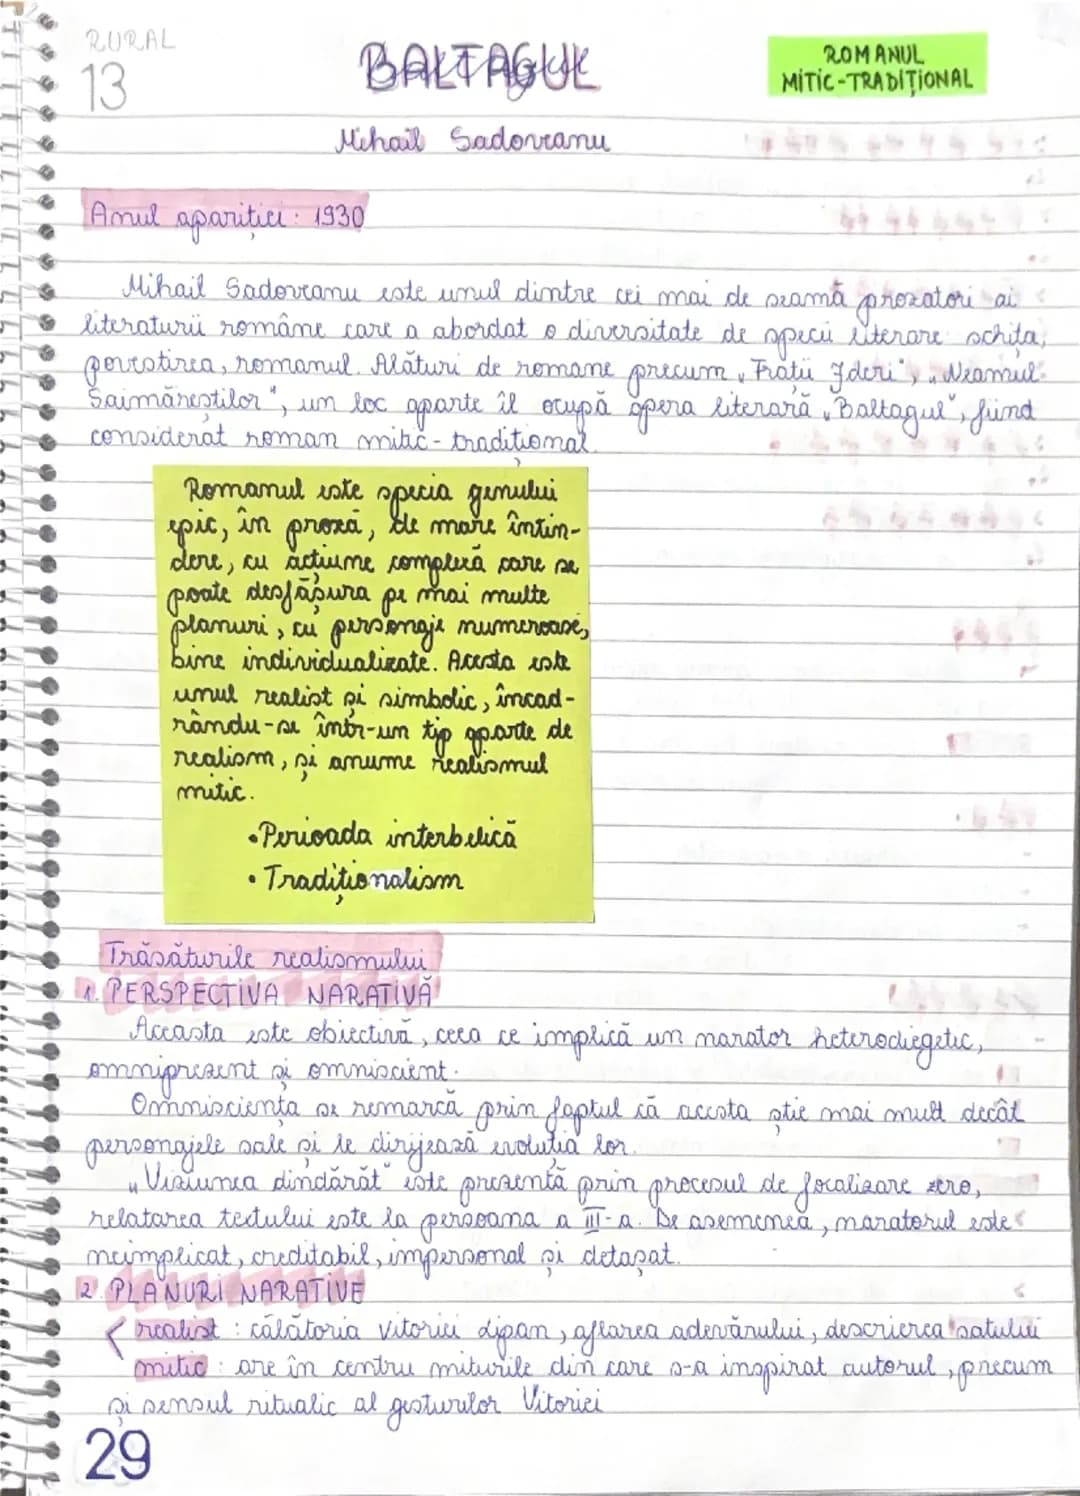 RURAL
13
BALTAGUL
ROMANUL
MITIC-TRADIȚIONAL
Mihail Sadoveanu
Anul apariției: 1930
Mihail Sadoveanu este unul dintre cei mai de seamă prozatori ai
literaturii române care a abordat o diversitate de specii literare: schița,
povestirea, romanul. Alături de romane precum „Frații Jderi", „Neamul
Șoimăreștilor", un loc aparte îl ocupă opera literară „Baltagul", fiind
considerat roman mitic-tradițional.
Romanul este specia genului
epic, în proză, de mare întin-
dere, cu acțiune complexă care se
poate desfășura pe mai multe
planuri, cu personaje numeroase,
bine individualizate. Acesta este
unul realist și simbolic, încad-
rându-se într-un tip aparte de
realism, și anume realismul
mitic.
•Perioada interbelică
•Tradiționalism
Trăsăturile realismului
1. PERSPECTIVA NARATIVĂ
Aceasta este obiectivă, ceea ce implică un narator heterodiegetic,
omniprezent și omniscient.
Omnisciența se remarcă prin faptul că acesta știe mai mult decât
personajele sale și le dirijează evoluția lor.
„Viziunea dindărăt" este prezentă prin procesul de focalizare zero,
relatarea textului este la persoana a III-a. De asemenea, naratorul este
neimplicat, creditabil, impersonal și detașat.
2. PLANURI NARATIVE
realist: călătoria Vitoriei Lipan, aflarea adevărului, descrierea satului
mitic: are în centru miturile din care s-a inspirat autorul, precum
și sensul ritualic al gesturilor Vitoriei
29